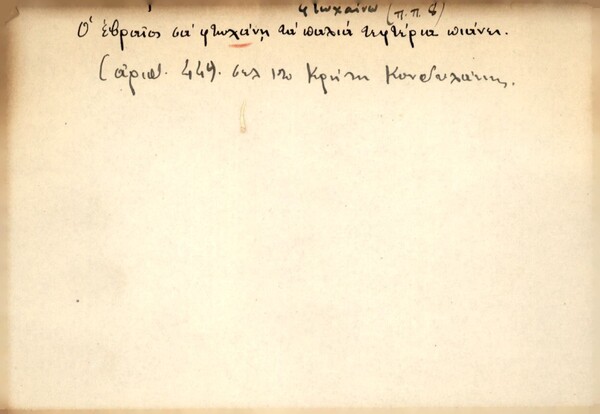 φτωχαίνω (π.π. 8)
Ὁ ἑβραῖος σα' φτωχάνῃ τα' παλιά τεφτέρια πιάνει.
(ἀριθ. 449. σελ 120 Κρήτη Κονδυλάκης.